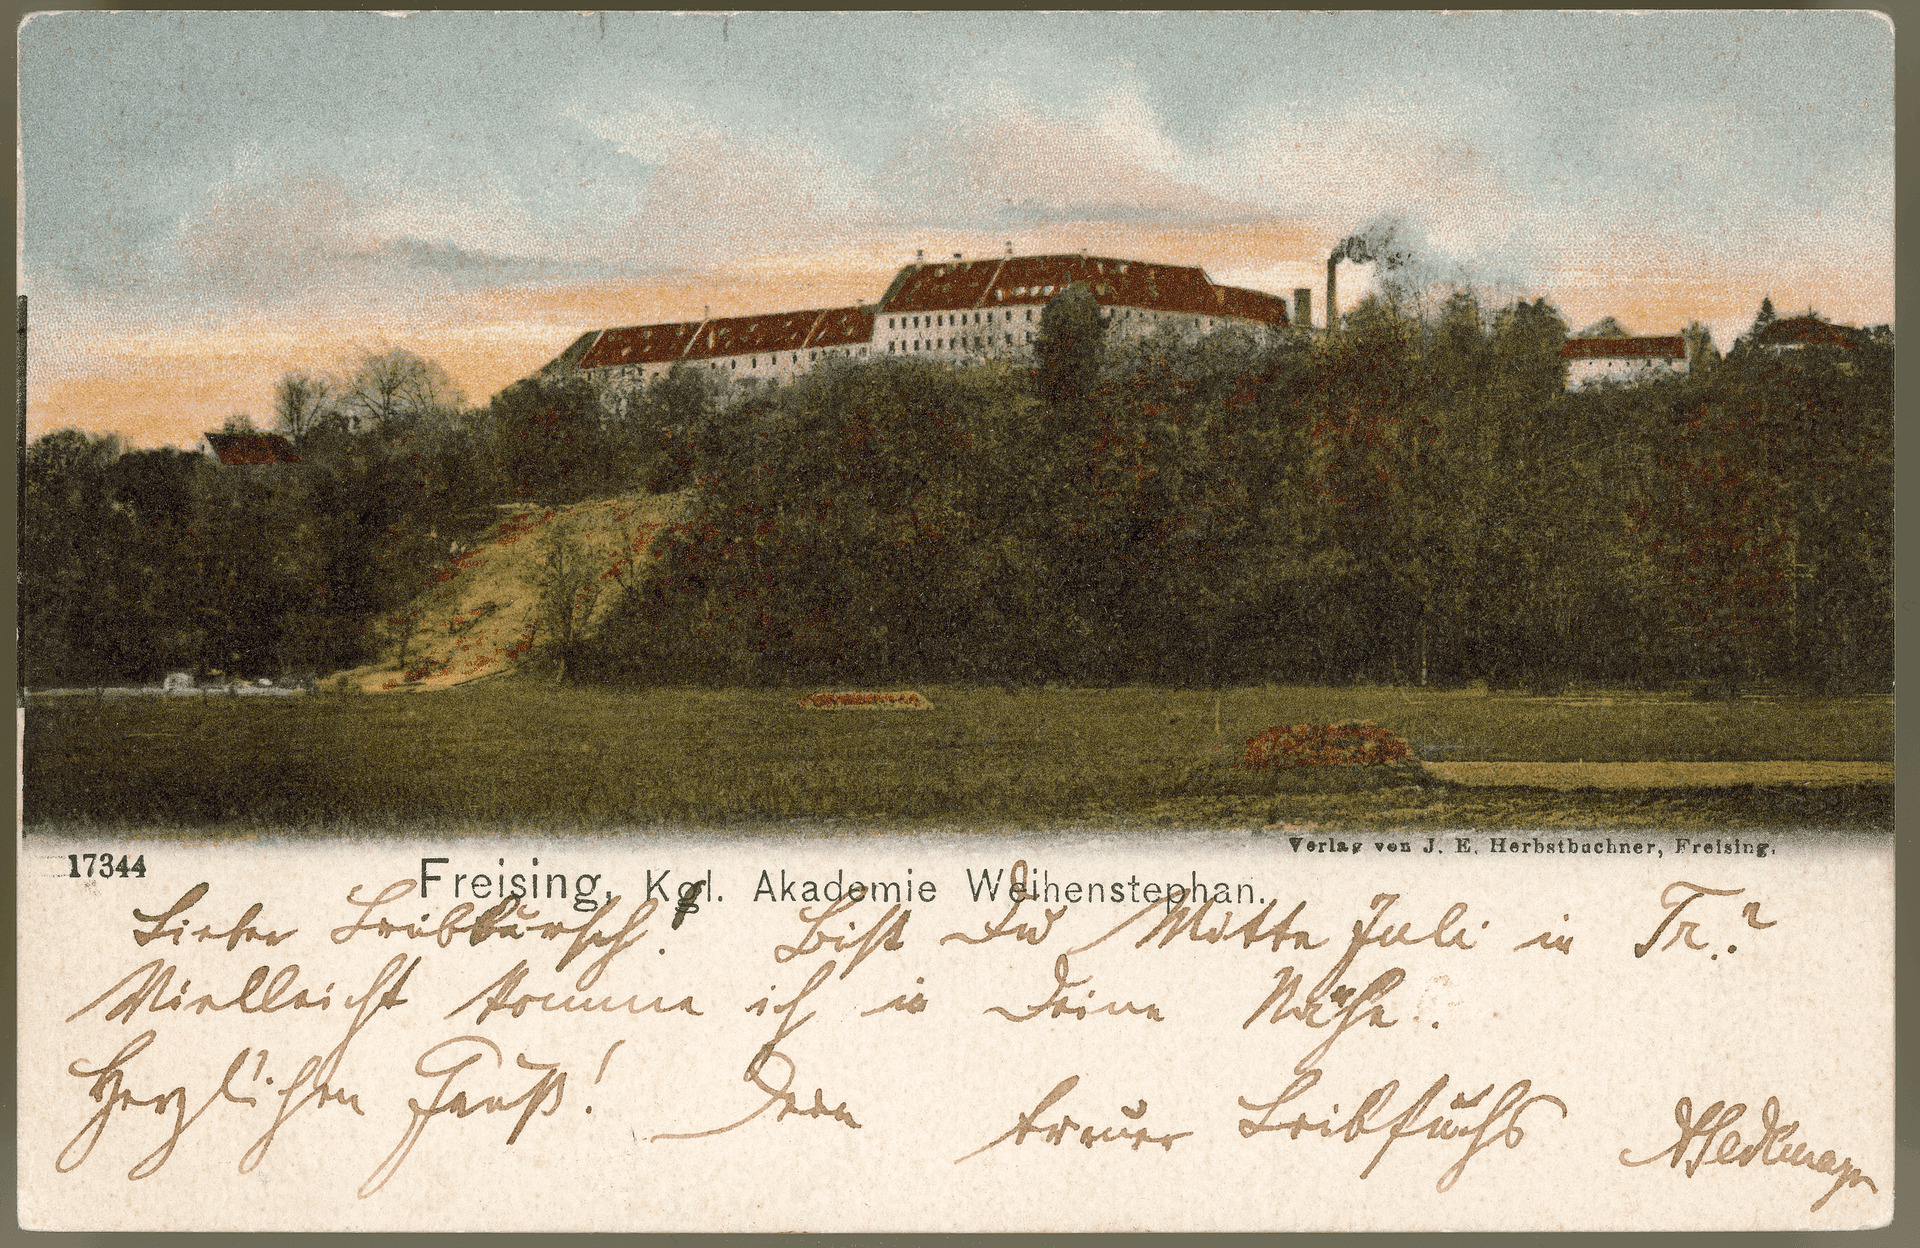 Verlag von J. E. Herbstbuchner, Freising.
17344
Freising, Kgl. Akademie Weihenstephan.
Lieber Leibbursch! Bist Du Mitte Juli in Tr.?
Vielleicht komme ich in Deine Nähe.
Herzlichen Gruß! Dein treuer Leibfuchs